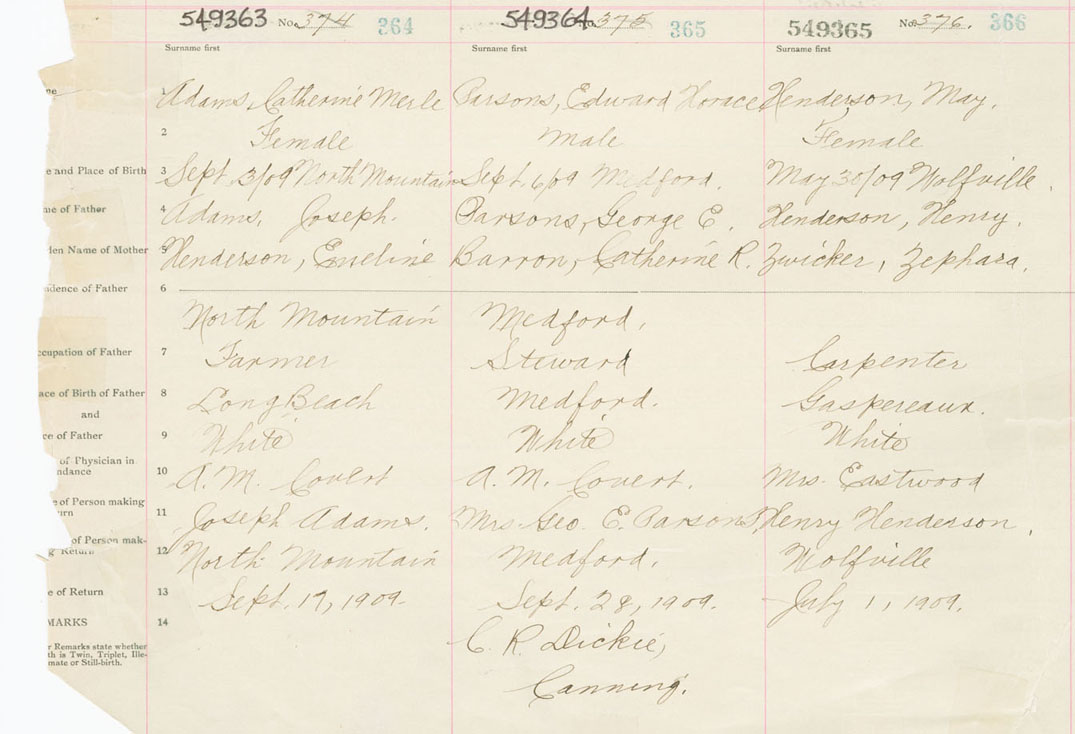 549363 No. 374 364 549364 No. 375 365 549365 No. 376. 366
Surname first Surname first Surname first
me 1 Adams, Catherine Merle Parsons, Edward Horace Henderson, May.
2 Female Male Female
e and Place of Birth 3 Sept. 3/09 North Mountain Sept. 6/09 Medford. May 30/09 Wolfville.
me of Father 4 Adams, Joseph. Parsons, George E. Henderson, Henry.
den Name of Mother 5 Henderson, Emeline Barron, Catherine R. Zwicker, Zephara.
idence of Father 6
North Mountain Medford,
ccupation of Father 7 Farmer Steward Carpenter
ace of Birth of Father 8 Long Beach Medford. Gaspereaux.
and
ce of Father 9 White White White
of Physician in
ndance 10 A. M. Covert A. M. Covert. Mrs. Eastwood
e of Person making
urn 11 Joseph Adams. Mrs. Geo. E. Parsons, Henry Henderson.
of Person mak-
g Return 12 North Mountain Medford. Wolfville
e of Return 13 Sept. 17, 1909. Sept. 28, 1909. July 1, 1909.
MARKS 14
C. R. Dickie,
r Remarks state whether
th is Twin, Triplet, Ille-
mate or Still-birth.
Canning.